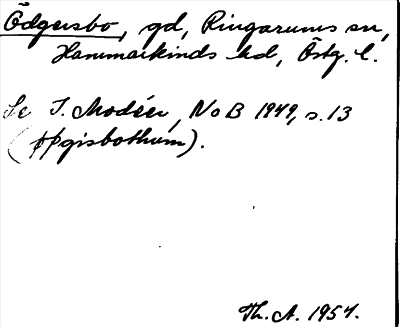 Ödgersbo, gd, Ringarums sn,
Hammarkinds hd, Östg. l.
Se I. Modéer, NoB 1949, s. 13
(Øpgisbothum).
Th. A. 1954.